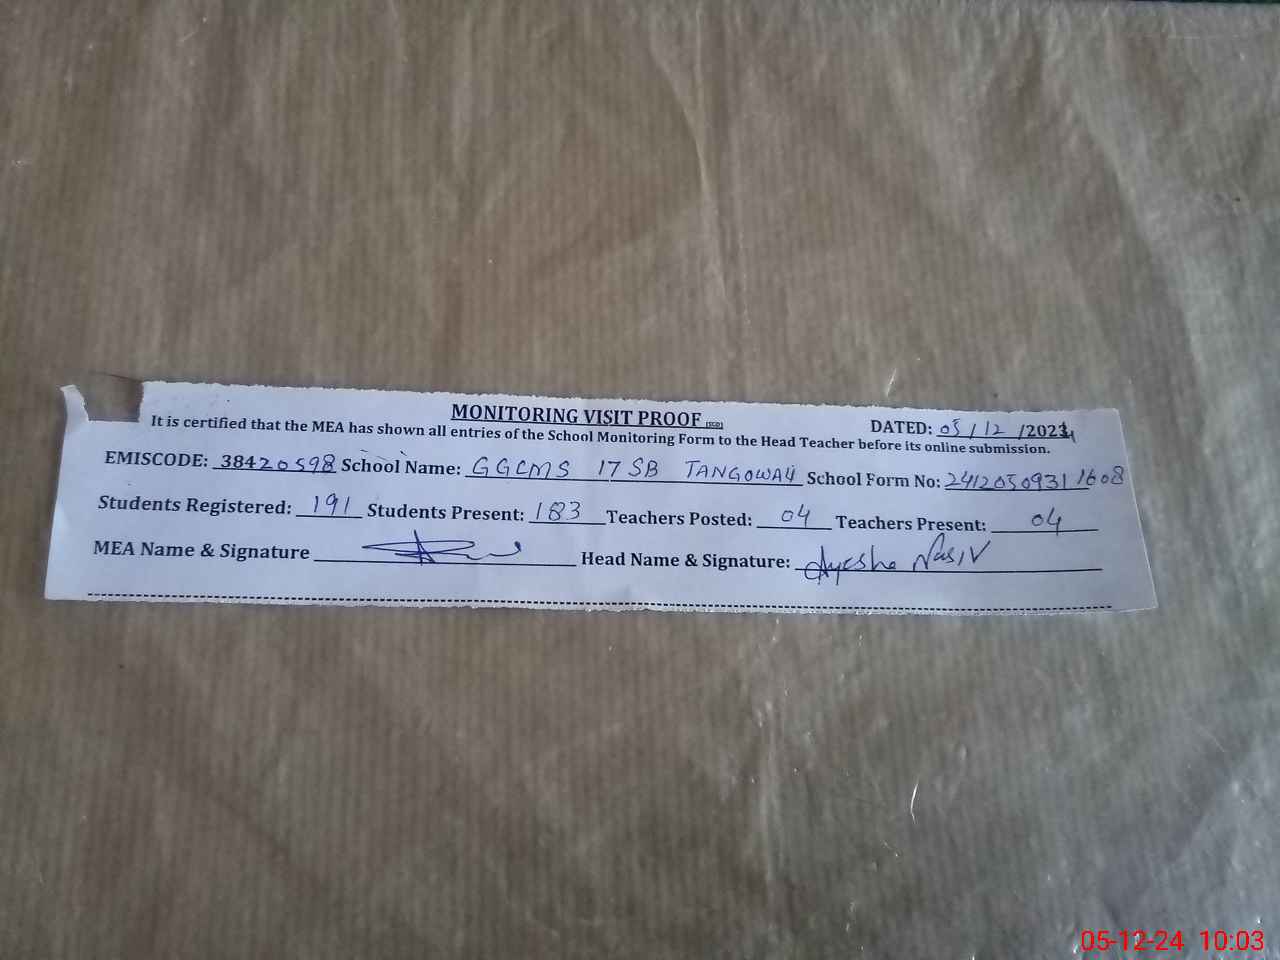 MONITORING VISIT PROOF (SGD) DATED: 05/12/2024
It is certified that the MEA has shown all entries of the School Monitoring Form to the Head Teacher before its online submission.
EMISCODE: 38420598 School Name: GGCMS 17 SB TANGOWALI School Form No: 2412050931 1608
Students Registered: 191 Students Present: 183 Teachers Posted: 04 Teachers Present: 04
MEA Name & Signature Head Name & Signature: Ayesha Nasir
05-12-24 10:03